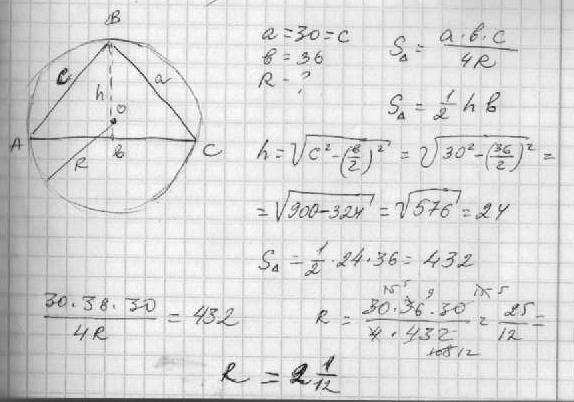 B
a = 30 = c
b = 36
R - ?
S△ = a·b·c / 4R
S△ = 1/2 h b
c h a
O
A b C
R
h = √(c² - (b/2)²) = √(30² - (36/2)²) =
= √(900-324) = √576 = 24
S△ = 1/2 · 24 · 36 = 432
30 · 36 · 30 / 4R = 432
R = 30 · 36 · 30 / 4 · 432 = 25/12 =
R = 2 1/12